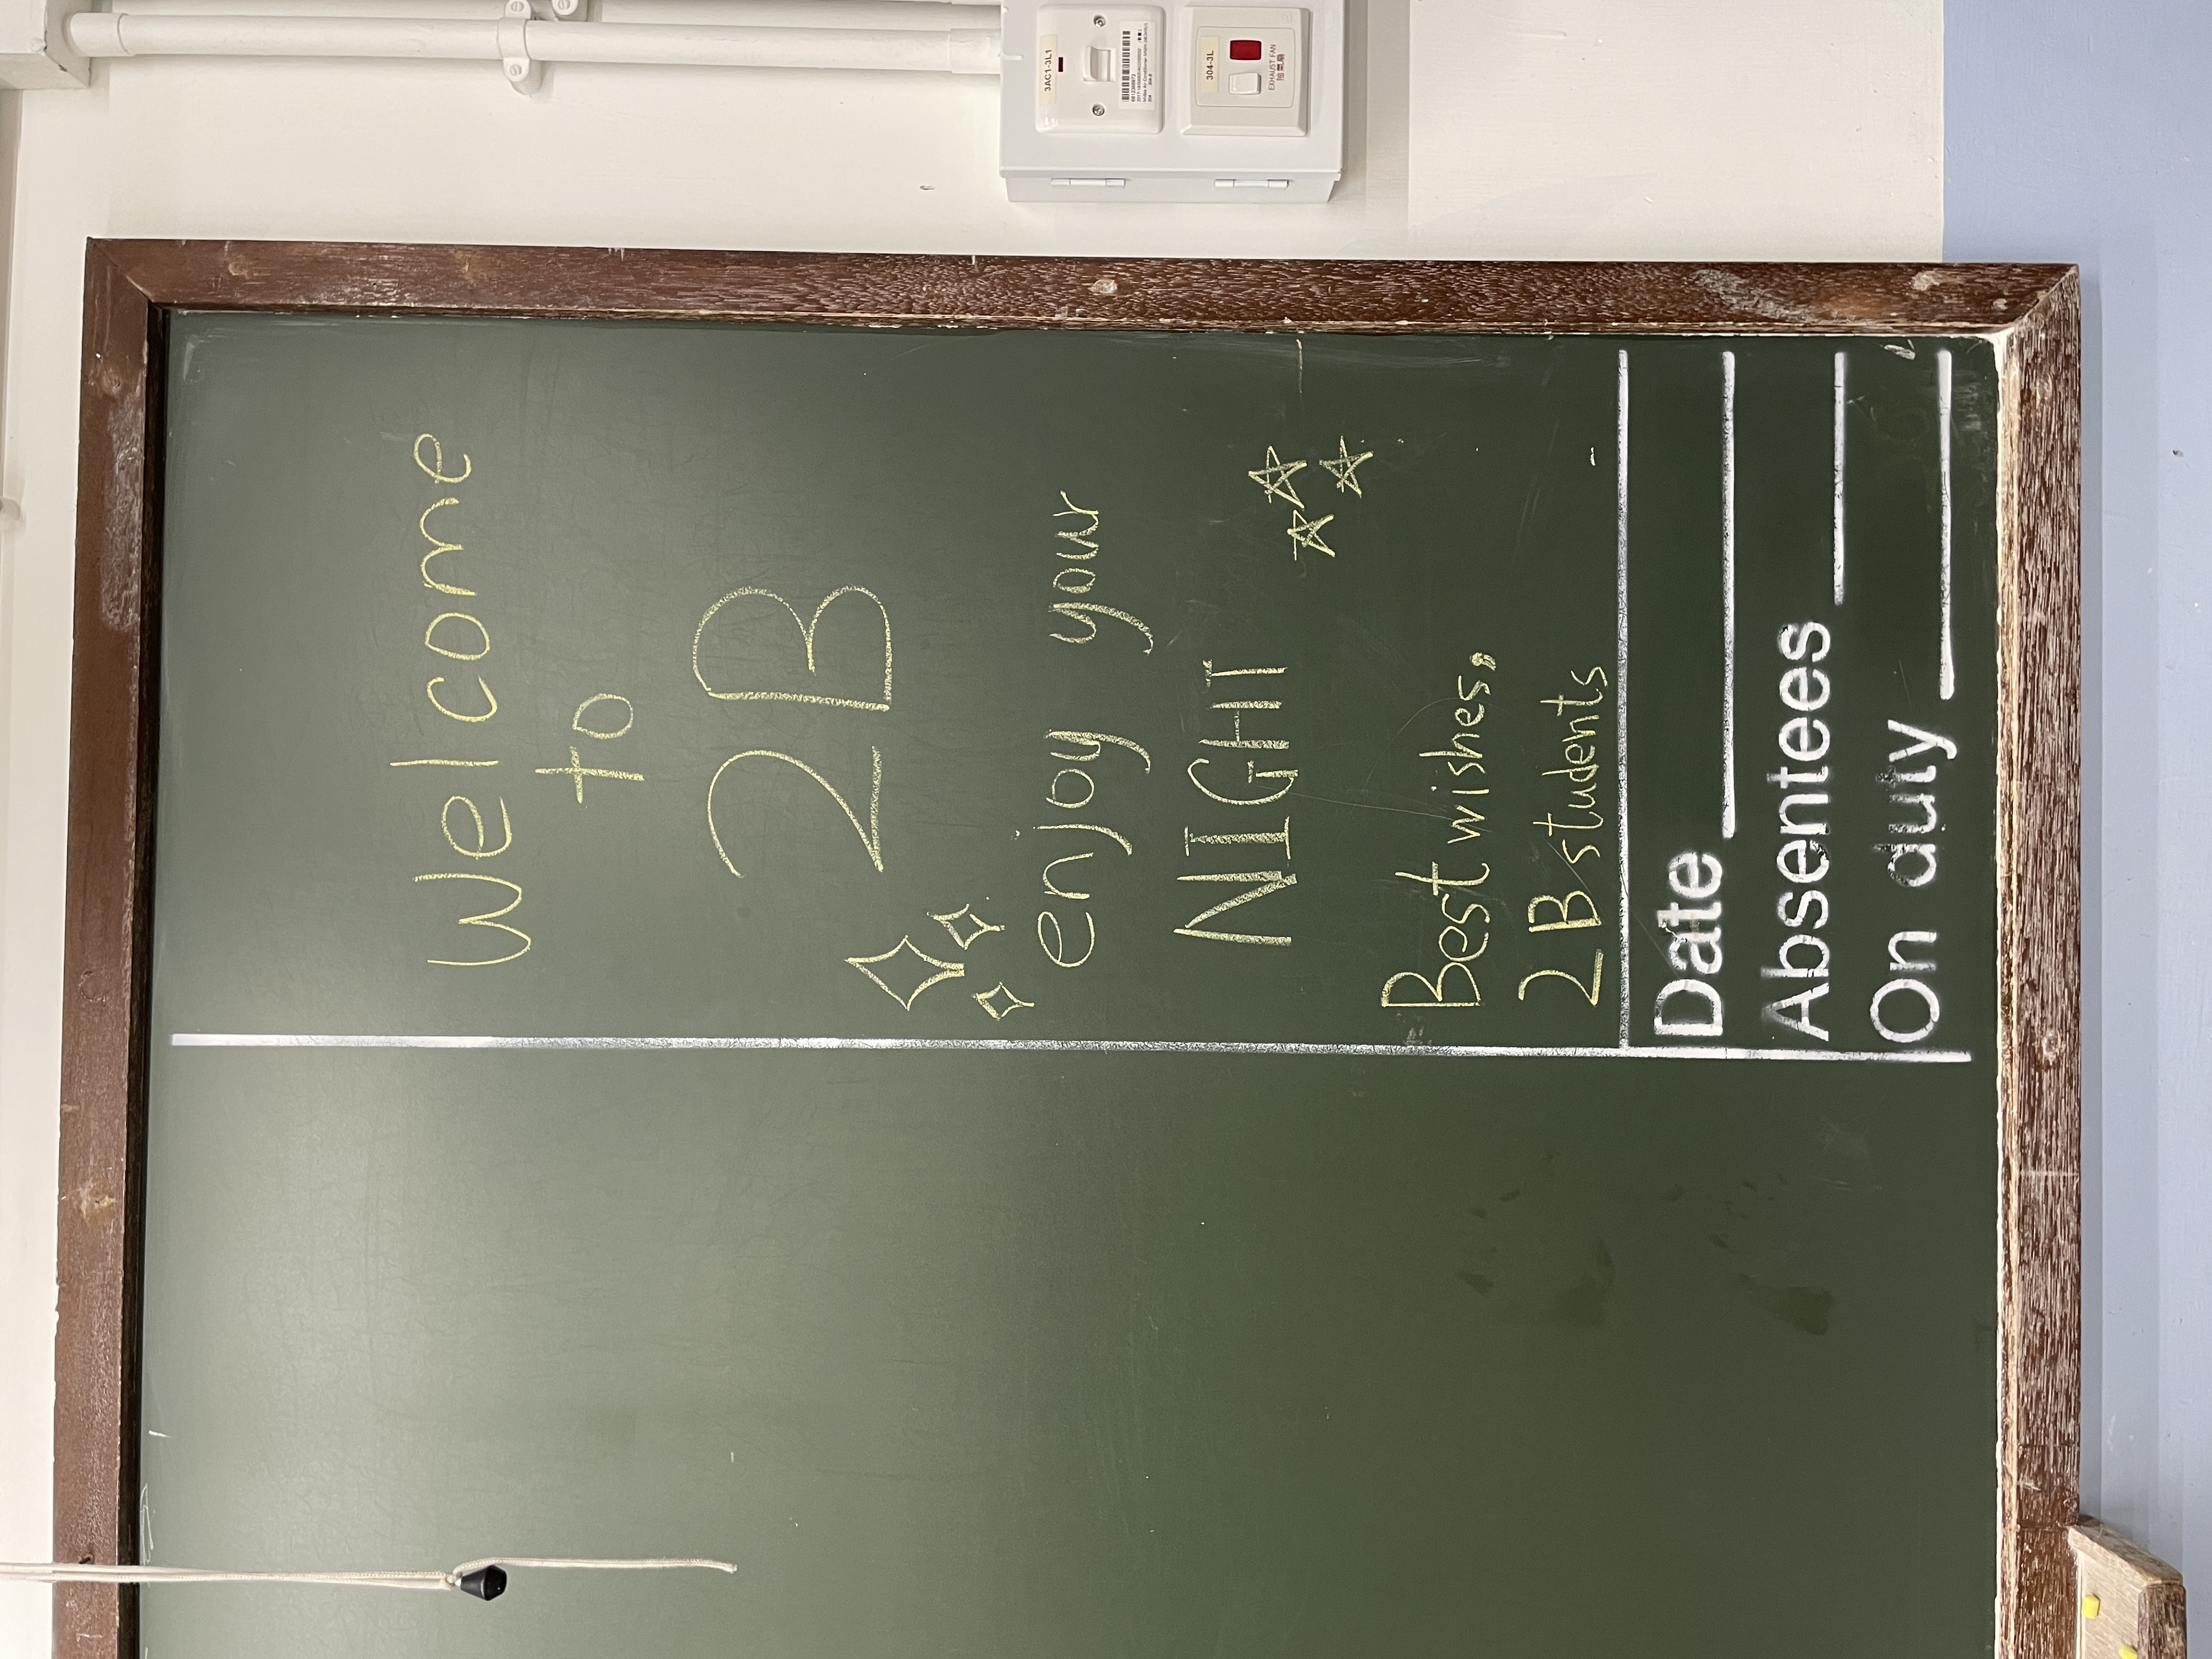 Welcome
to
2B
enjoy your
NIGHT
Best wishes,
2B students
Date
Absentees
On duty
3AC1-3L1
304-3L
EXHAUST FAN
抽氣扇